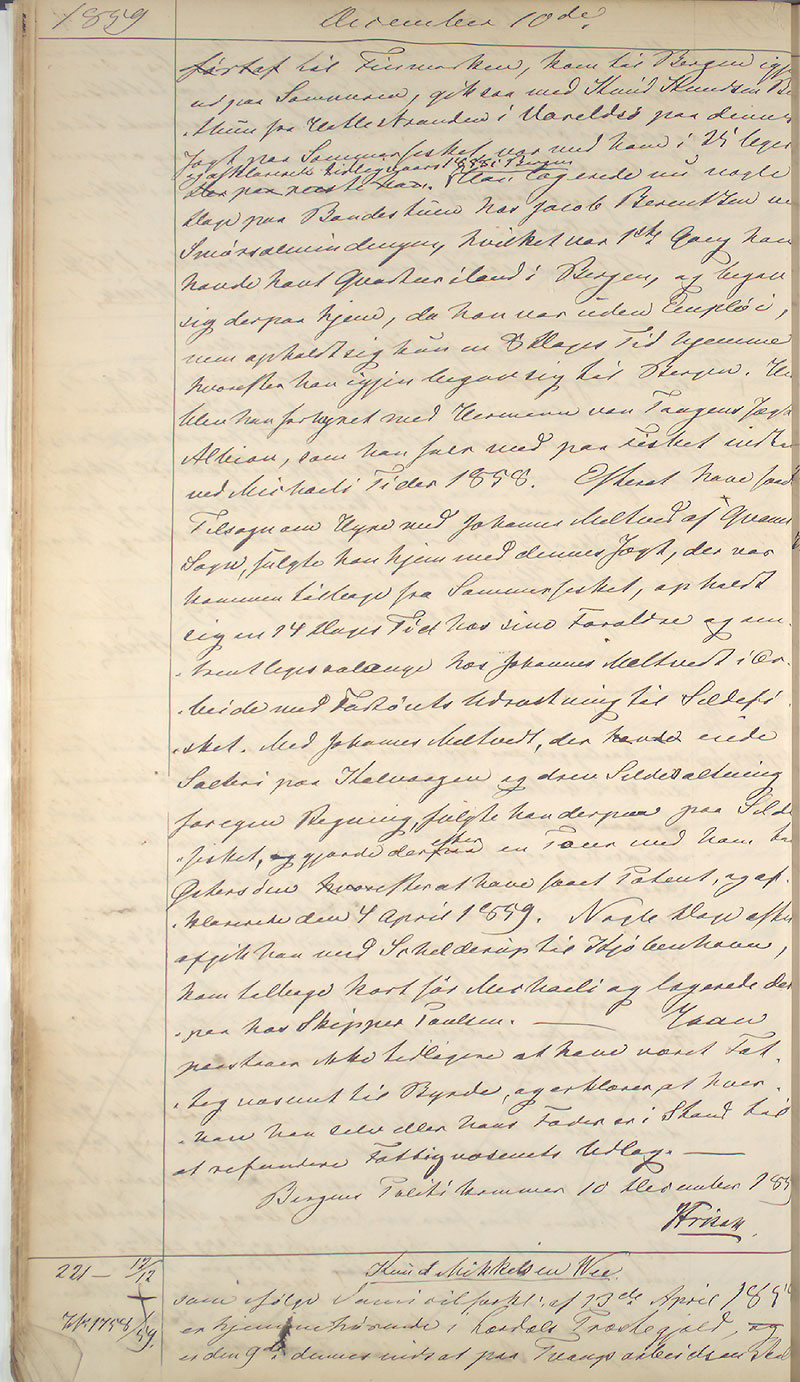 1859 December 10de
førtaf til Finmarken, kom til Bergen igje
ud paa Sommeren, gik saa med Knud Knudsen
fra Hatlestranden i Varaldsø paa dennes
Jagt paa Sommerfisket, var med ham i Vi
og afklarerede tidligvaars 1858 i Bergen
Han logerede nu nogle
Dage paa Bandestuen hos Jacob Berentzen
Smörsalmindingen, hvilket var 1ste Gang han
havde havt Qvarteer iland i Bergen, og begav
sig derpaa hjem, da han var uden Employ,
men opholdt sig kun en 8 Dages Tid hjemme
hvorefter han igjen begav sig til Bergen. He
blev han forhyret med Hermann von Tangens Jagt
Albion, som han foer med paa Fisket indtil
ved Michaeli Tider 1858. Efterat have faaet
Tilsagn om Hyre med Johannes Meltved af Qvams
Sogn, fulgte han hjem med dennes Jagt, der var
kommen tilbage fra Sommerfisket, opholdt
sig en 14 Dages Tid hos sine Forældre og om-
trent ligesaalænge hos Johannes Meltvedt i Ar-
beide med Fartöiets Udrustning til Sildefi-
sket. Med Johannes Meltvedt, der havde eiede
Salteri paa Kalvaagen og drev Sildesaltning
for egen Regning, fulgte han derpaa paa Silde
fisket, og gjorde derefter en Tour med ham til
Östersöen hvorefter at have faaet Patent, og af-
klarerede den 4 April 1859. Nogle Dage efter
afgik han med Schelderup til Kjöbenhavn,
kom tilbage kort för Michaeli og logerede der-
paa hos Skipper Paulsen. — Han
paastaaer ikke tidligere at have været Fat-
tigvæsenet til Byrde, og erklærer, at hver-
ken han selv eller hans Fader er i Stand til
at refundere Fattigvæsenets Udlæg. —
Bergens Politikammer 10 December 185
221 — 12/12
Knud Mikkelsen Wee
som ifølge af 13de April 185
er hjemmehørende i Præstegjæld, og
er den 9de dennes indsat paa Tvangsarbeidsan
1758/59.